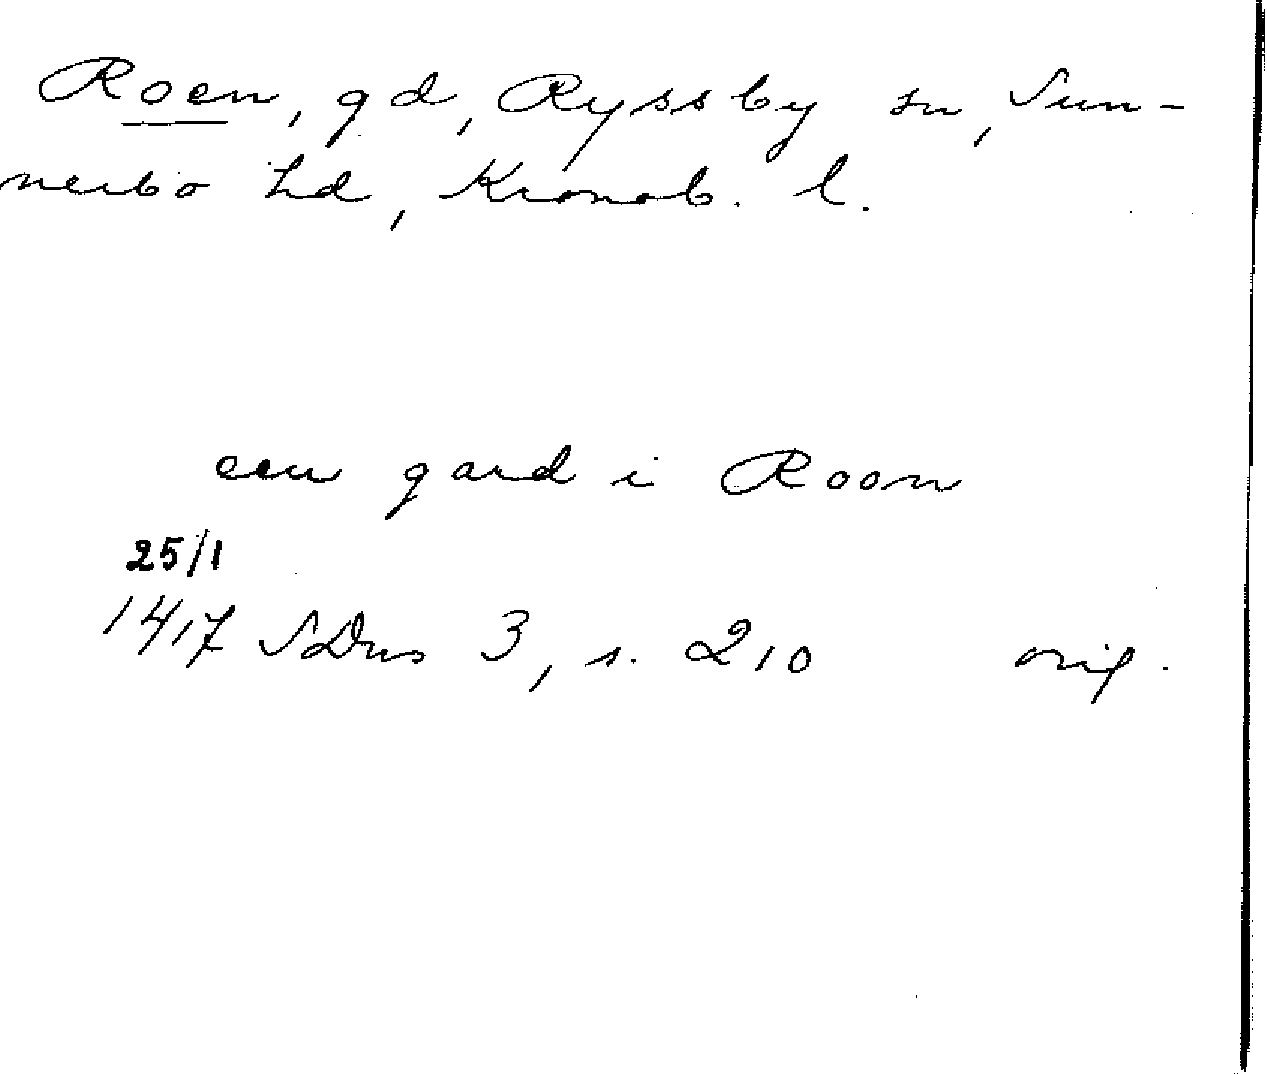 Roen, gd, Ryssby sn, Sun-
nerbo hd, Kronob. l.
een gard i Roon
25/1
1417 SDns 3, s. 210 orig.